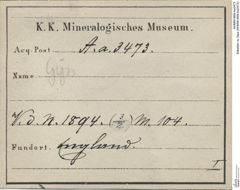 K. K. Mineralogisches Museum.
Acq. Post A.a. 3473.
Name
V. d. N. 1894. (3/2) M. 104.
Fundort. England.
I